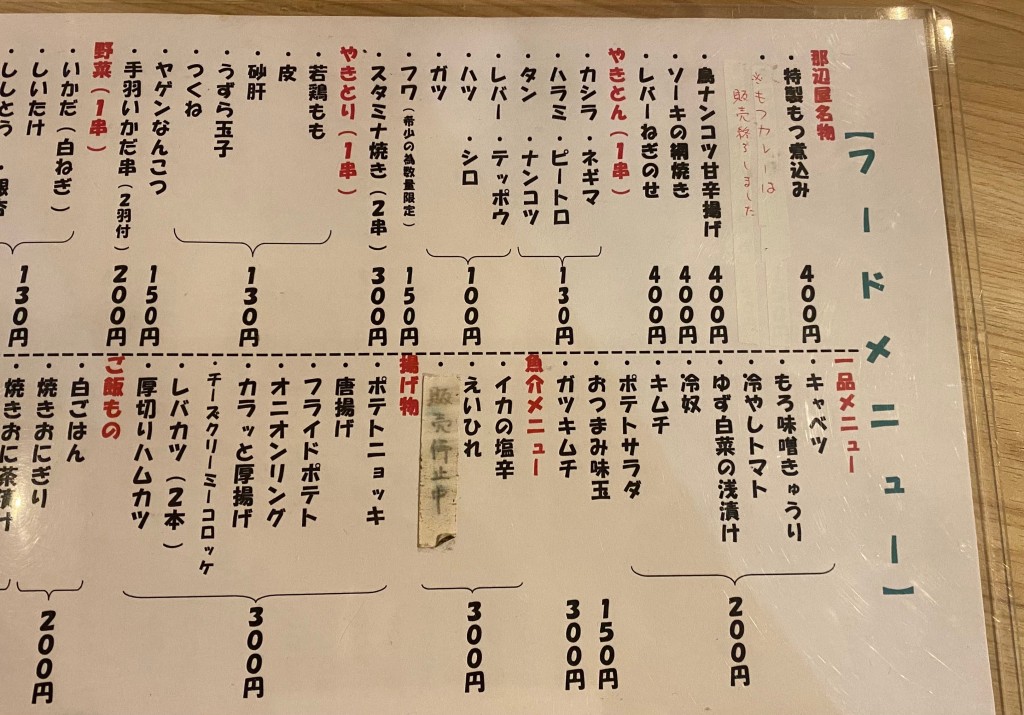 【フードメニュー】
那辺屋名物
・特製もつ煮込み 400円
・
※もつカレーは
販売終了しました
・鳥ナンコツ甘辛揚げ 400円
・ソーキの網焼き 400円
・レバーねぎのせ 400円
やきとん（1串）
・カシラ ・ネギマ
・ハラミ ・ピートロ
・タン ・ナンコツ
130円
・レバー ・テッポウ
・ハツ ・シロ
・ガツ
100円
・フワ（希少の為数量限定） 150円
・スタミナ焼き（2串） 300円
やきとり（1串）
・若鶏もも
・皮
・砂肝
・うずら玉子
・つくね
130円
・ヤゲンなんこつ 150円
・手羽いかだ串（2羽付） 200円
野菜（1串）
・いかだ（白ねぎ）
・しいたけ
・ししとう ・銀杏
130円
一品メニュー
・キャベツ
・もろ味噌きゅうり
・冷やしトマト
・ゆず白菜の浅漬け
・冷奴
・キムチ
・ポテトサラダ
200円
・おつまみ味玉 150円
・ガツキムチ 300円
魚介メニュー
・イカの塩辛
・えいひれ
・販売停止中
300円
揚げ物
・ポテトニョッキ
・唐揚げ
・フライドポテト
・オニオンリング
・カラッと厚揚げ
・チーズクリーミーコロッケ
・レバカツ（2本）
・厚切りハムカツ
300円
ご飯もの
・白ごはん
・焼きおにぎり
200円
・焼きおに茶漬け